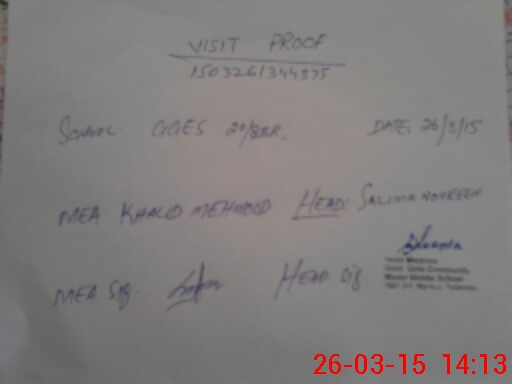 VISIT PROOF
1503261344375
SCHOOL. GGES 20/8BR. DATE: 26/3/15
MEA KHALID MEHMOOD HEAD: SALIMA NOUREEN
MEA Sig. HEAD Sig
Head Mistress
Govt. Girls Community
Model Middle School
26-03-15 14:13